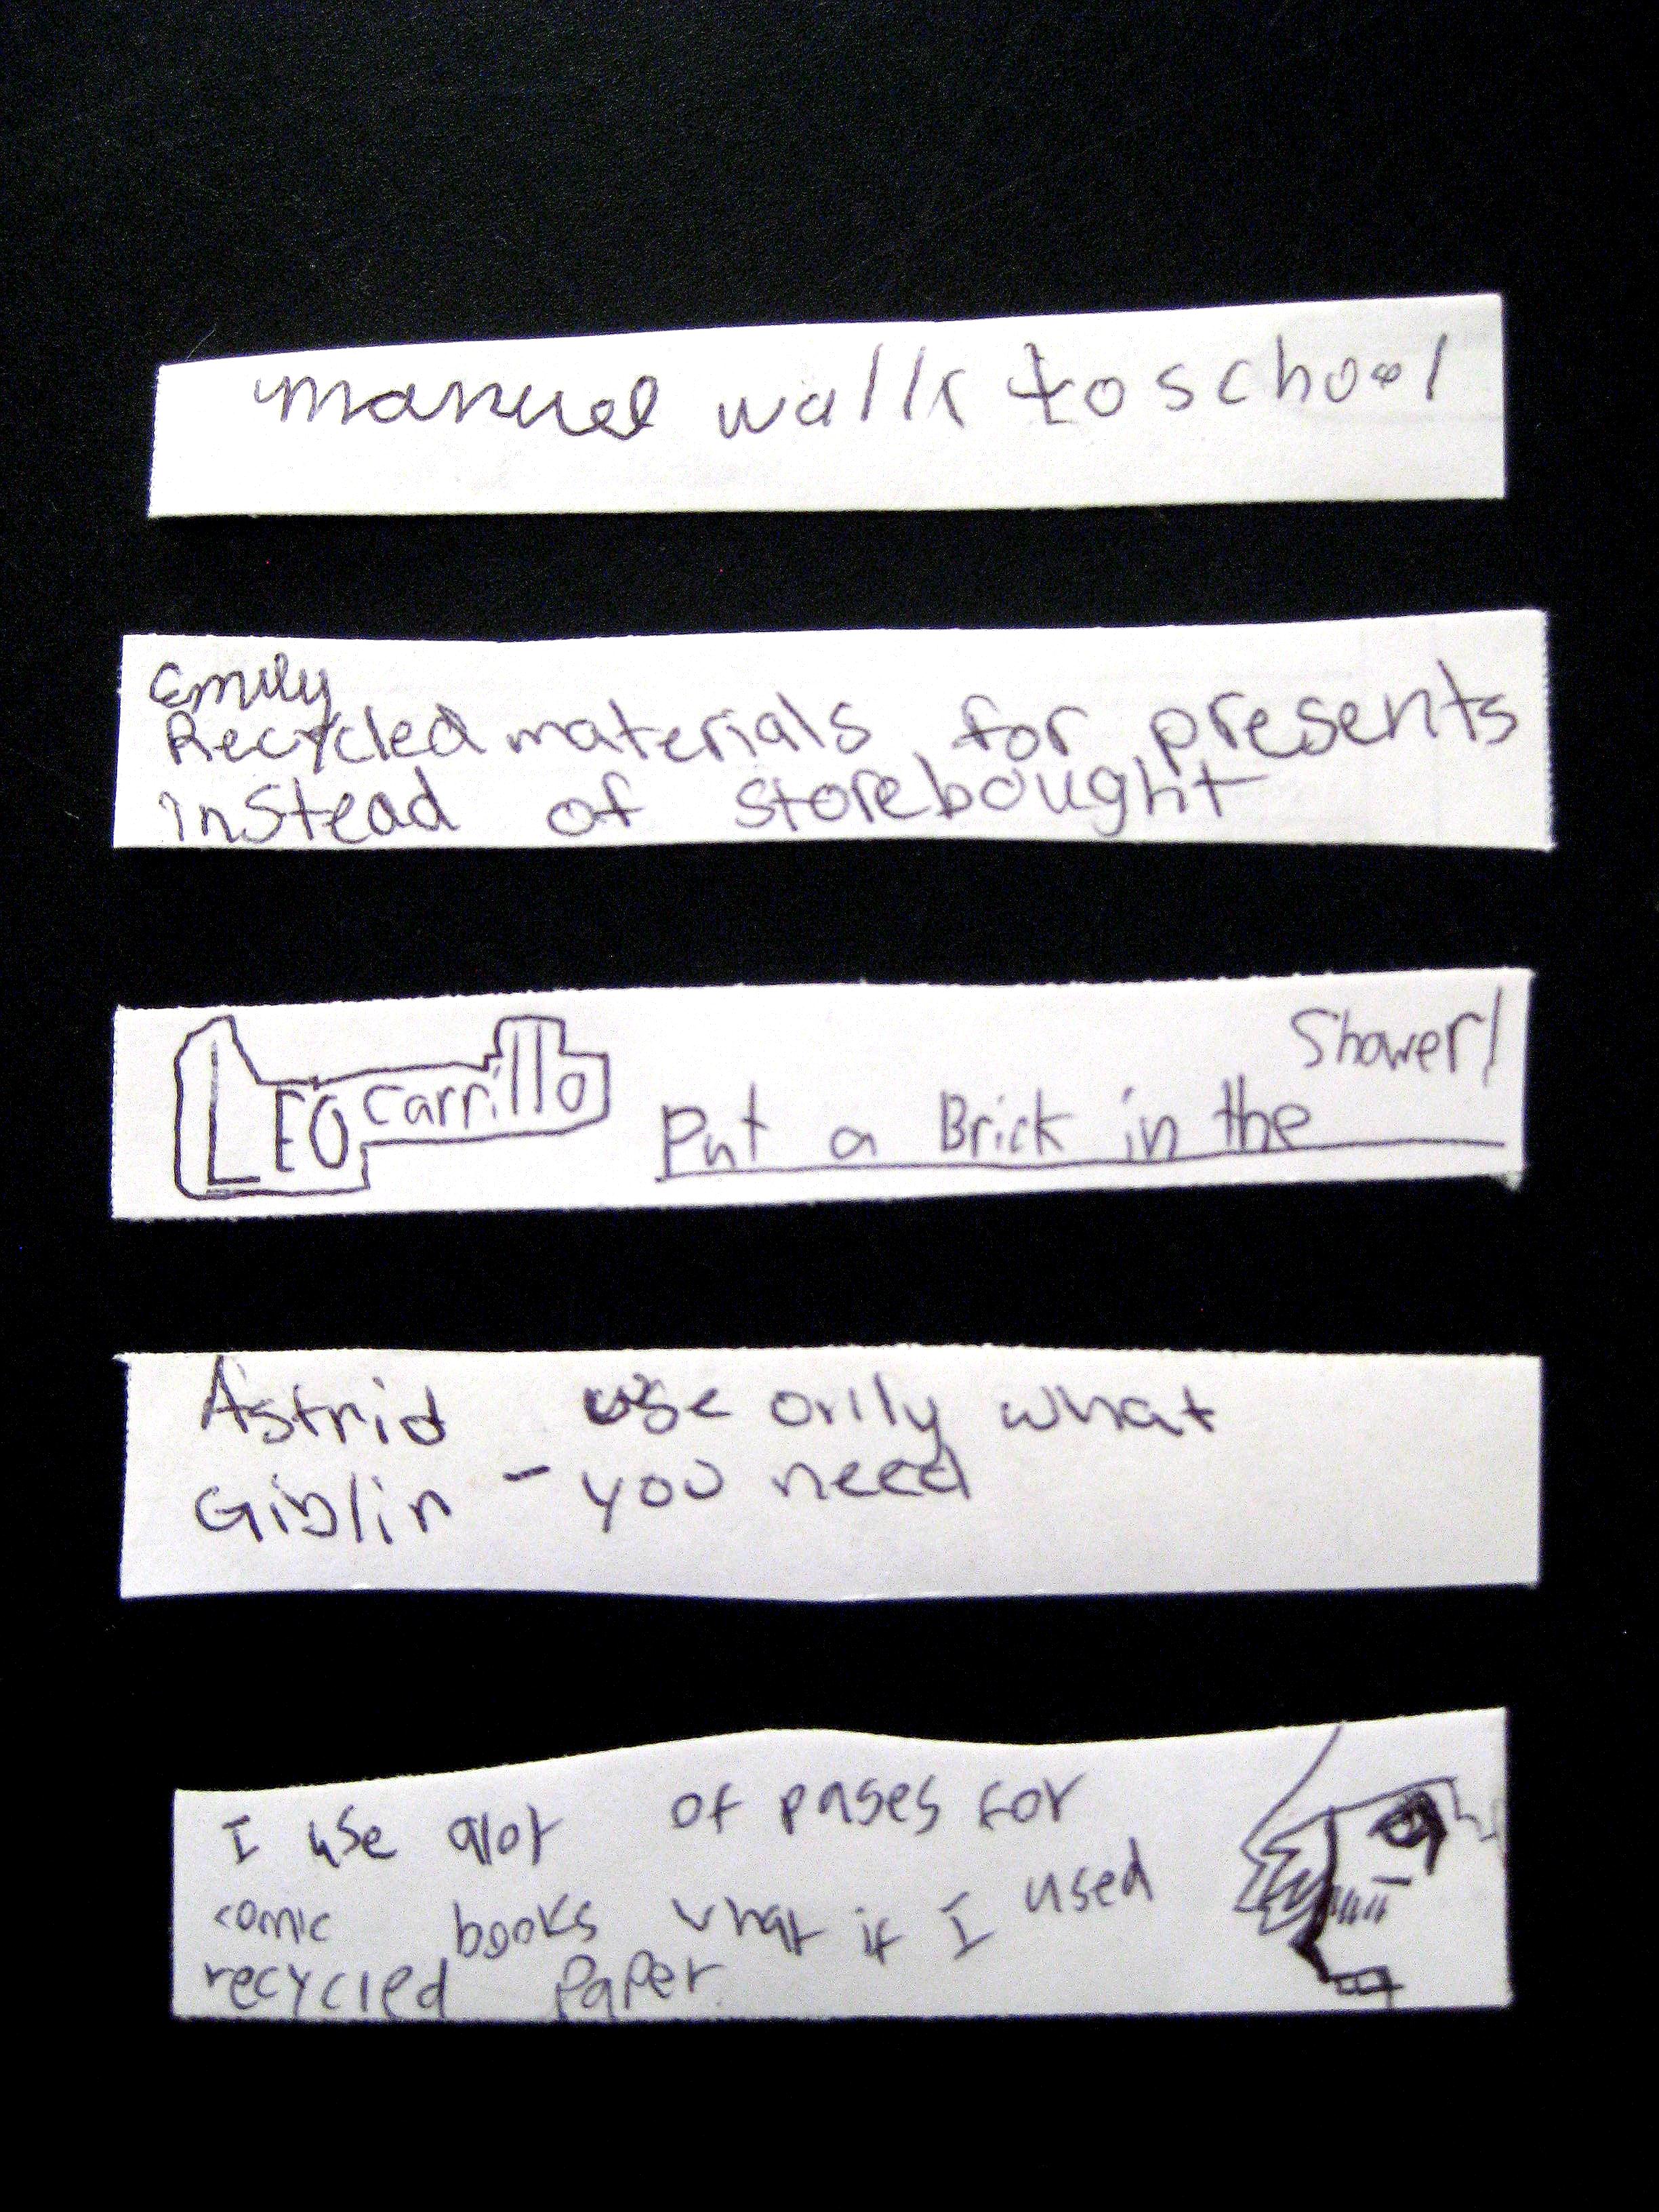 manuel walk to school
Emily
Recycled materials for presents
instead of storebought
LEO Carrillo Put a Brick in the Shower!
Astrid use only what
Giblin - you need
I use alot of pages for
comic books what if I used
recycled paper.